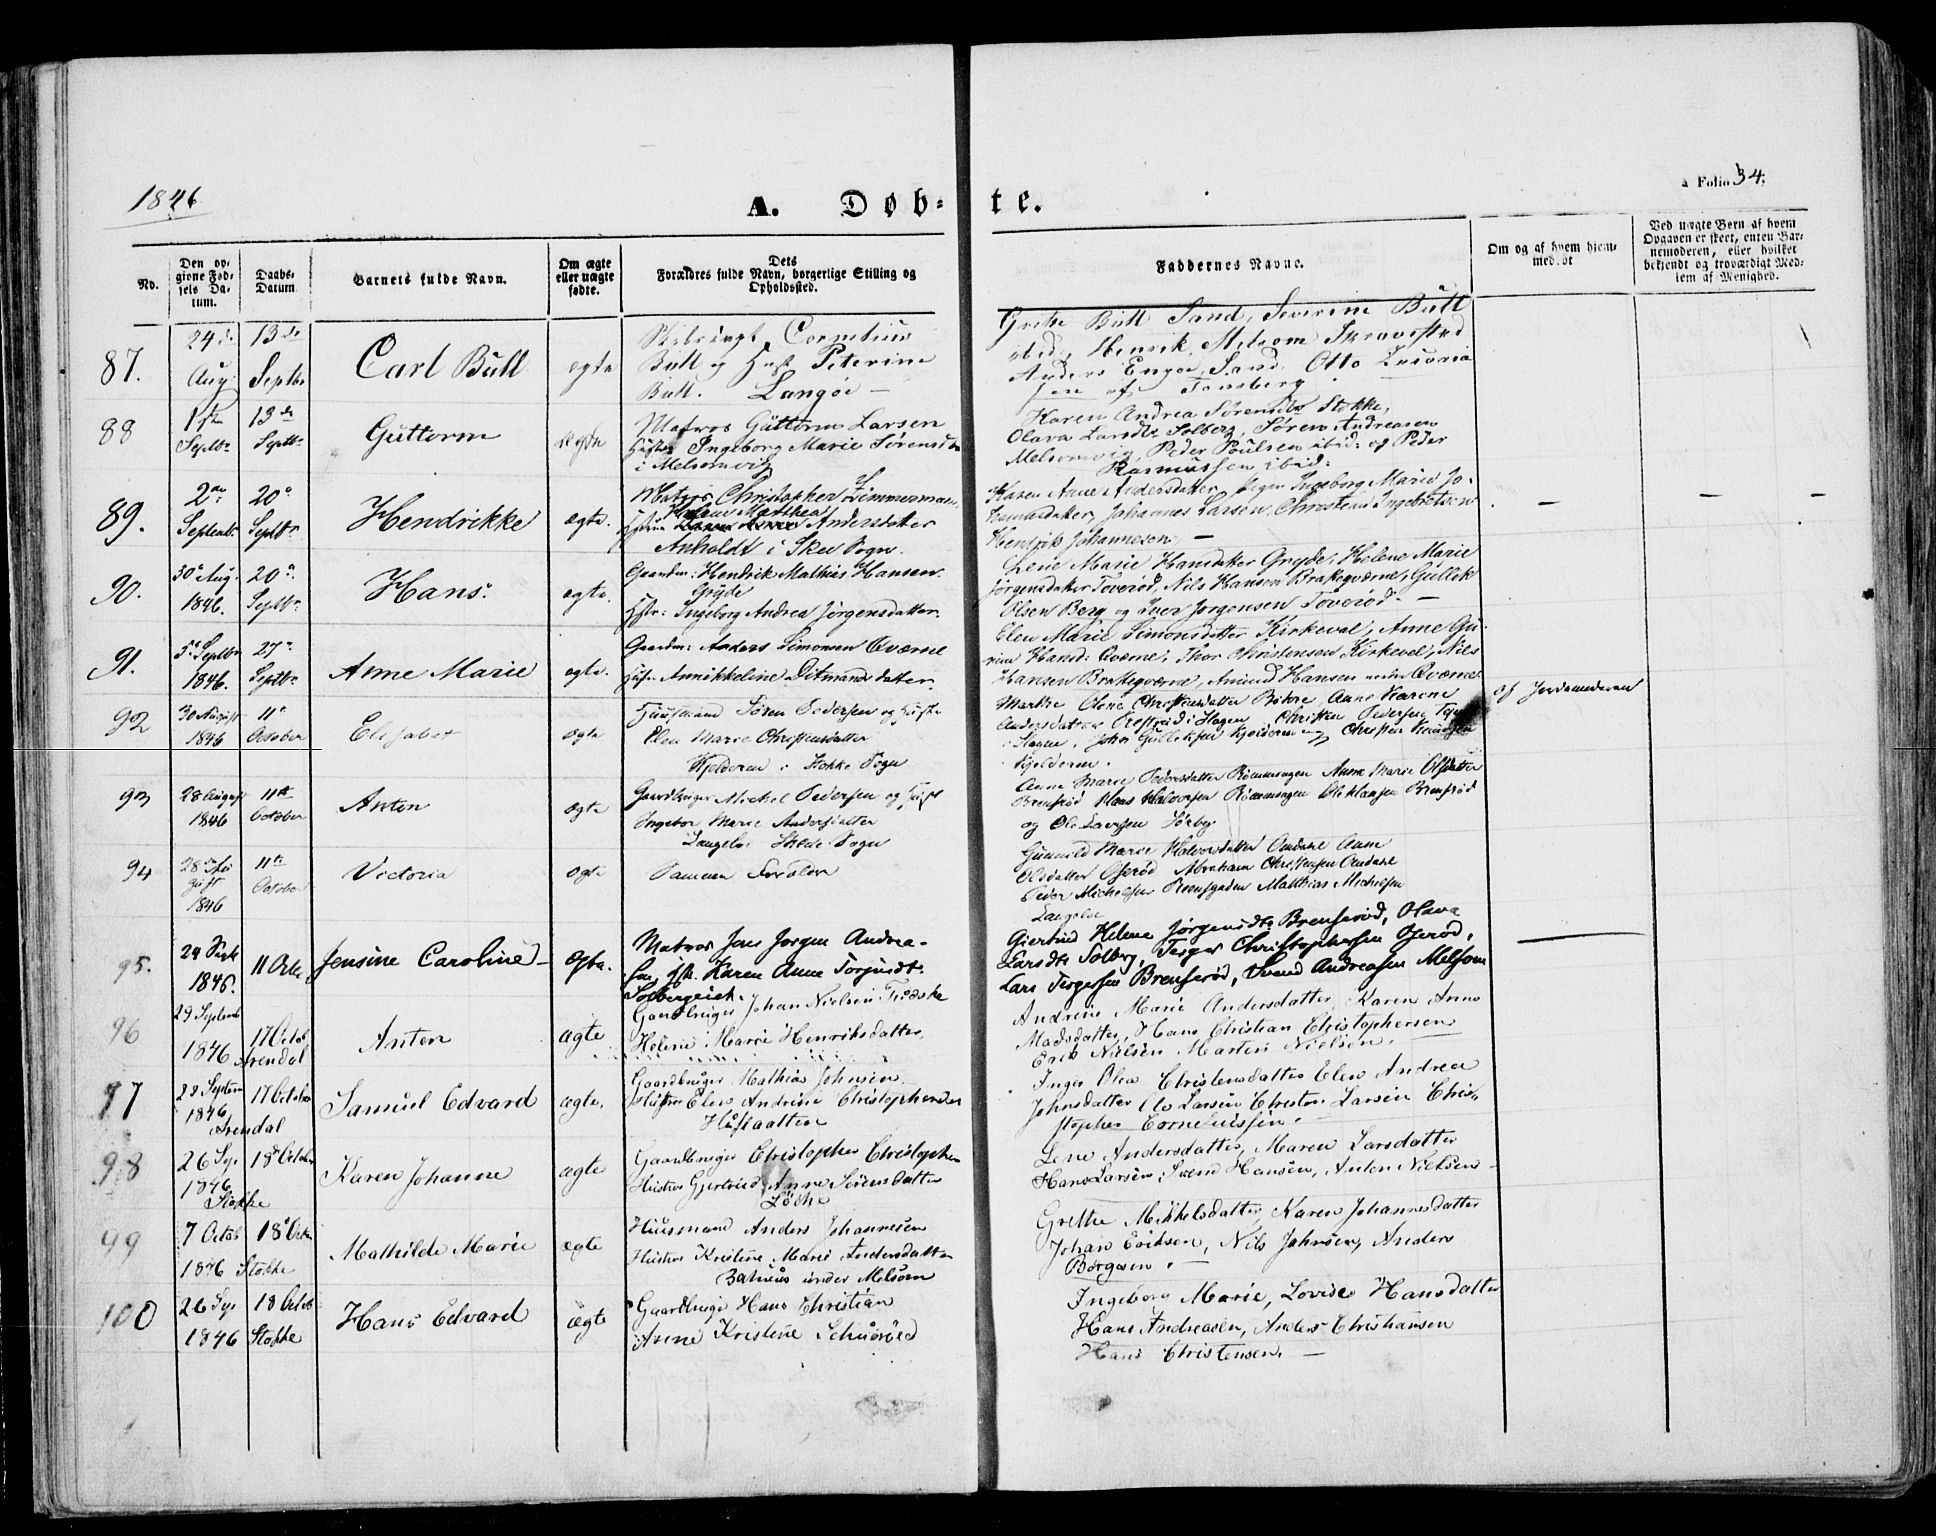 1846
A. Døb-
te.
a Folio 34.
No.
Den op-
givne Fød-
sels Da-
tum.
Daabs-
Datum
Barnets fulde Navn.
Om ægte
eller uægte
fødte.
Dets
Forældres fulde Navn, borgerlige Stilling og
Opholdssted.
Faddernes Navne.
Om og af hvem hjem-
medøbt
Ved uægte Børn af hvem
Opgaven er skeet, enten Bar-
nemoderen, eller hvilket
bekjendt og troværdigt Med-
lem af Menighed.
87.
24de
Aug.
13de
Septbr
Carl Bull
ægte
Cornelius
Bull og Hust Peterine
Bull. Langøe –
Grethe Bull Sand, Severine Bull
ibid, Henrik Melsom
Anders Engøe Sand, Otto
sen af Tønsberg.
88
1ste
Septbr
13de
Septbr
Guttorm
ægte
Matros Guttorm Larsen
Hustr. Ingeborg Marie Sørensdtr
i Melsomvig
Karen Andrea Sørensdtr Stokke,
Olava Larsdtr Solberg, Søren Andreasen
Melsomvig, Peder Poulsen ibid: og Peder
Rasmussen ibid:
89.
2den
Septembr
20de
Septbr
Hendrikke
ægte.
Matros Christopher Zimmerman,
Helene Matthea
Hstru Andersdatter
Anholdt i Skee Sogn.
Karen Anne Andersdatter, Pigen Ingeborg Marie Jo-
hannesdatter, Johannes Larsen, Christen Ingebretsen
Hendrik Johannesen. –
90.
30e Aug.
1846.
20de
Septbr
Hans.
ægte.
Gaardm: Hendrik Mathias Hansen
Gryde
Hstr: Ingeborg Andrea Jørgensdatter.
Lene Marie Hansdatter Gryde, Helene Marie
Jørgensdatter Toverød, Nils Hansen Brakeqværne, Gullik
Olsen Berg og Iver Jørgensen Toverød. –
91.
5e Septbr
1846.
27de
Septbr
Anne Marie
ægte.
Gaardm: Anders Simonsen Qværne
Hstr. Annikkeline Ditmansdatter.
Elen Marie Simonsdatter Kirkeval, Anne Gu-
rine Hansd: Qværne, Thor Christensen Kirkeval, Nils
Hansen Brakeqværne, Amund Hansen Qværne
92
30 August
1846
11e
October
Elisabet
ægte
Huusmand Søren Pedersen og Huste
Elen Marie Christensdatter
Kjelderen i Stokke Sogn
Marthe Olene Christensdatter Anne Karene
Andersdatter i Slagen, Christen Pedersen
i Slagen, Gulliksen Kjelderen og Christen
Kjelderen.
af Jordemoderen
93
28 August
1846
11te
October
Anton
ægte
Gaardbruger Michel Pedersen og Huste
Ingebor Marie Andersdatter
Langelo Skede Sogn
Anne Marie Pedersdatter Rømmingen Anne Marie Olsdatter
Brenserød Hans Halvorsen Rømmingen Ole Hansen Brenserød
og Ole Larssen Sørby.
94
28de Au
gust
1846
11te
October
Victoria
ægte
Samme Forældre
Gunnild Marie Halvorsdatter Anne
Olsdatter Oserød Abraham Christensen
Peder Michelsen Matthias Michelsen
Langelo
95.
24 Sept
1846.
11 Octbr
Jensine Caroline
ægte.
Matros Jens Jørgen Andrea-
sen, Hst. Karen Anne
Solbergeie.
Giertrud Helene Jørgensdtr Brenserød, Olava
Larsdtr Solberg, Terger Christophersen Oserød,
Lars Tergersen Brenserød, Svend Andreasen Melsom
96
29 Septemb
1846
17 Octob
Arendal
Anton
ægte
Gaardbruger Johan Nielsen
Helene Marie Henriksdatter
Andrine Marie Andersdatter, Karen Anne
Madsdatter, Hans Christian Christophersen
Erik Nielsen Marten Nielsen.
97
29 Septem
1846
Arendal
17 October
Samuel Edvard
ægte.
Gaardbruger Mathias Johnsen
Hustro Elen Andrine Christophersdatter
Huflaatten
Inger Olea Christensdatter Elen Andrea
Johnsdatter Ole Larsen Christen Larsen Chris-
topher Corneliussen.
98
26 Sep
1846
Stokke
18 October
Karen Johanne
ægte
Gaardbruger Christopher Christophe
Hustro Gjertrud Anne Sørensdatter
Løcke
Lene Andersdatter, Maren Larsdatter
Hans Larsen, Svend Hansen, Anton Nielsen
99
7 Octob
1846
18 Octbr
Stokke
Mathilde Marie
ægte
Huusmand Anders Johannesen
Hustro Kristine Marie Andersdatter
under Melsom
Grethe Mikkelsdatter, Karen Johannesdatter
Johan Eriksen, Nils Johnsen, Anders
Børgesen. –
100
26 Sep
1846
18 Octob
Stokke
Hans Edvard
ægte
Gaardbruge Hans Christian
Anne Kristine
Ingeborg Marie, Lovise Hansdatter
Hans Andreasen, Anders Christiansen
Hans Christensen. –